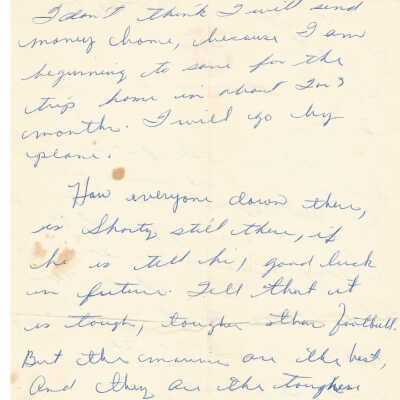 I don't think I will send
money home, because I am
beginning to save for the
trip home in about 2 or 3
months. I will go by
plane.
How everyone down there,
is Shorty still there, if
he is tell hi, good luck
in future. Tell that it
is tough, tougher than football.
But the marines are the best,
And they are the toughess